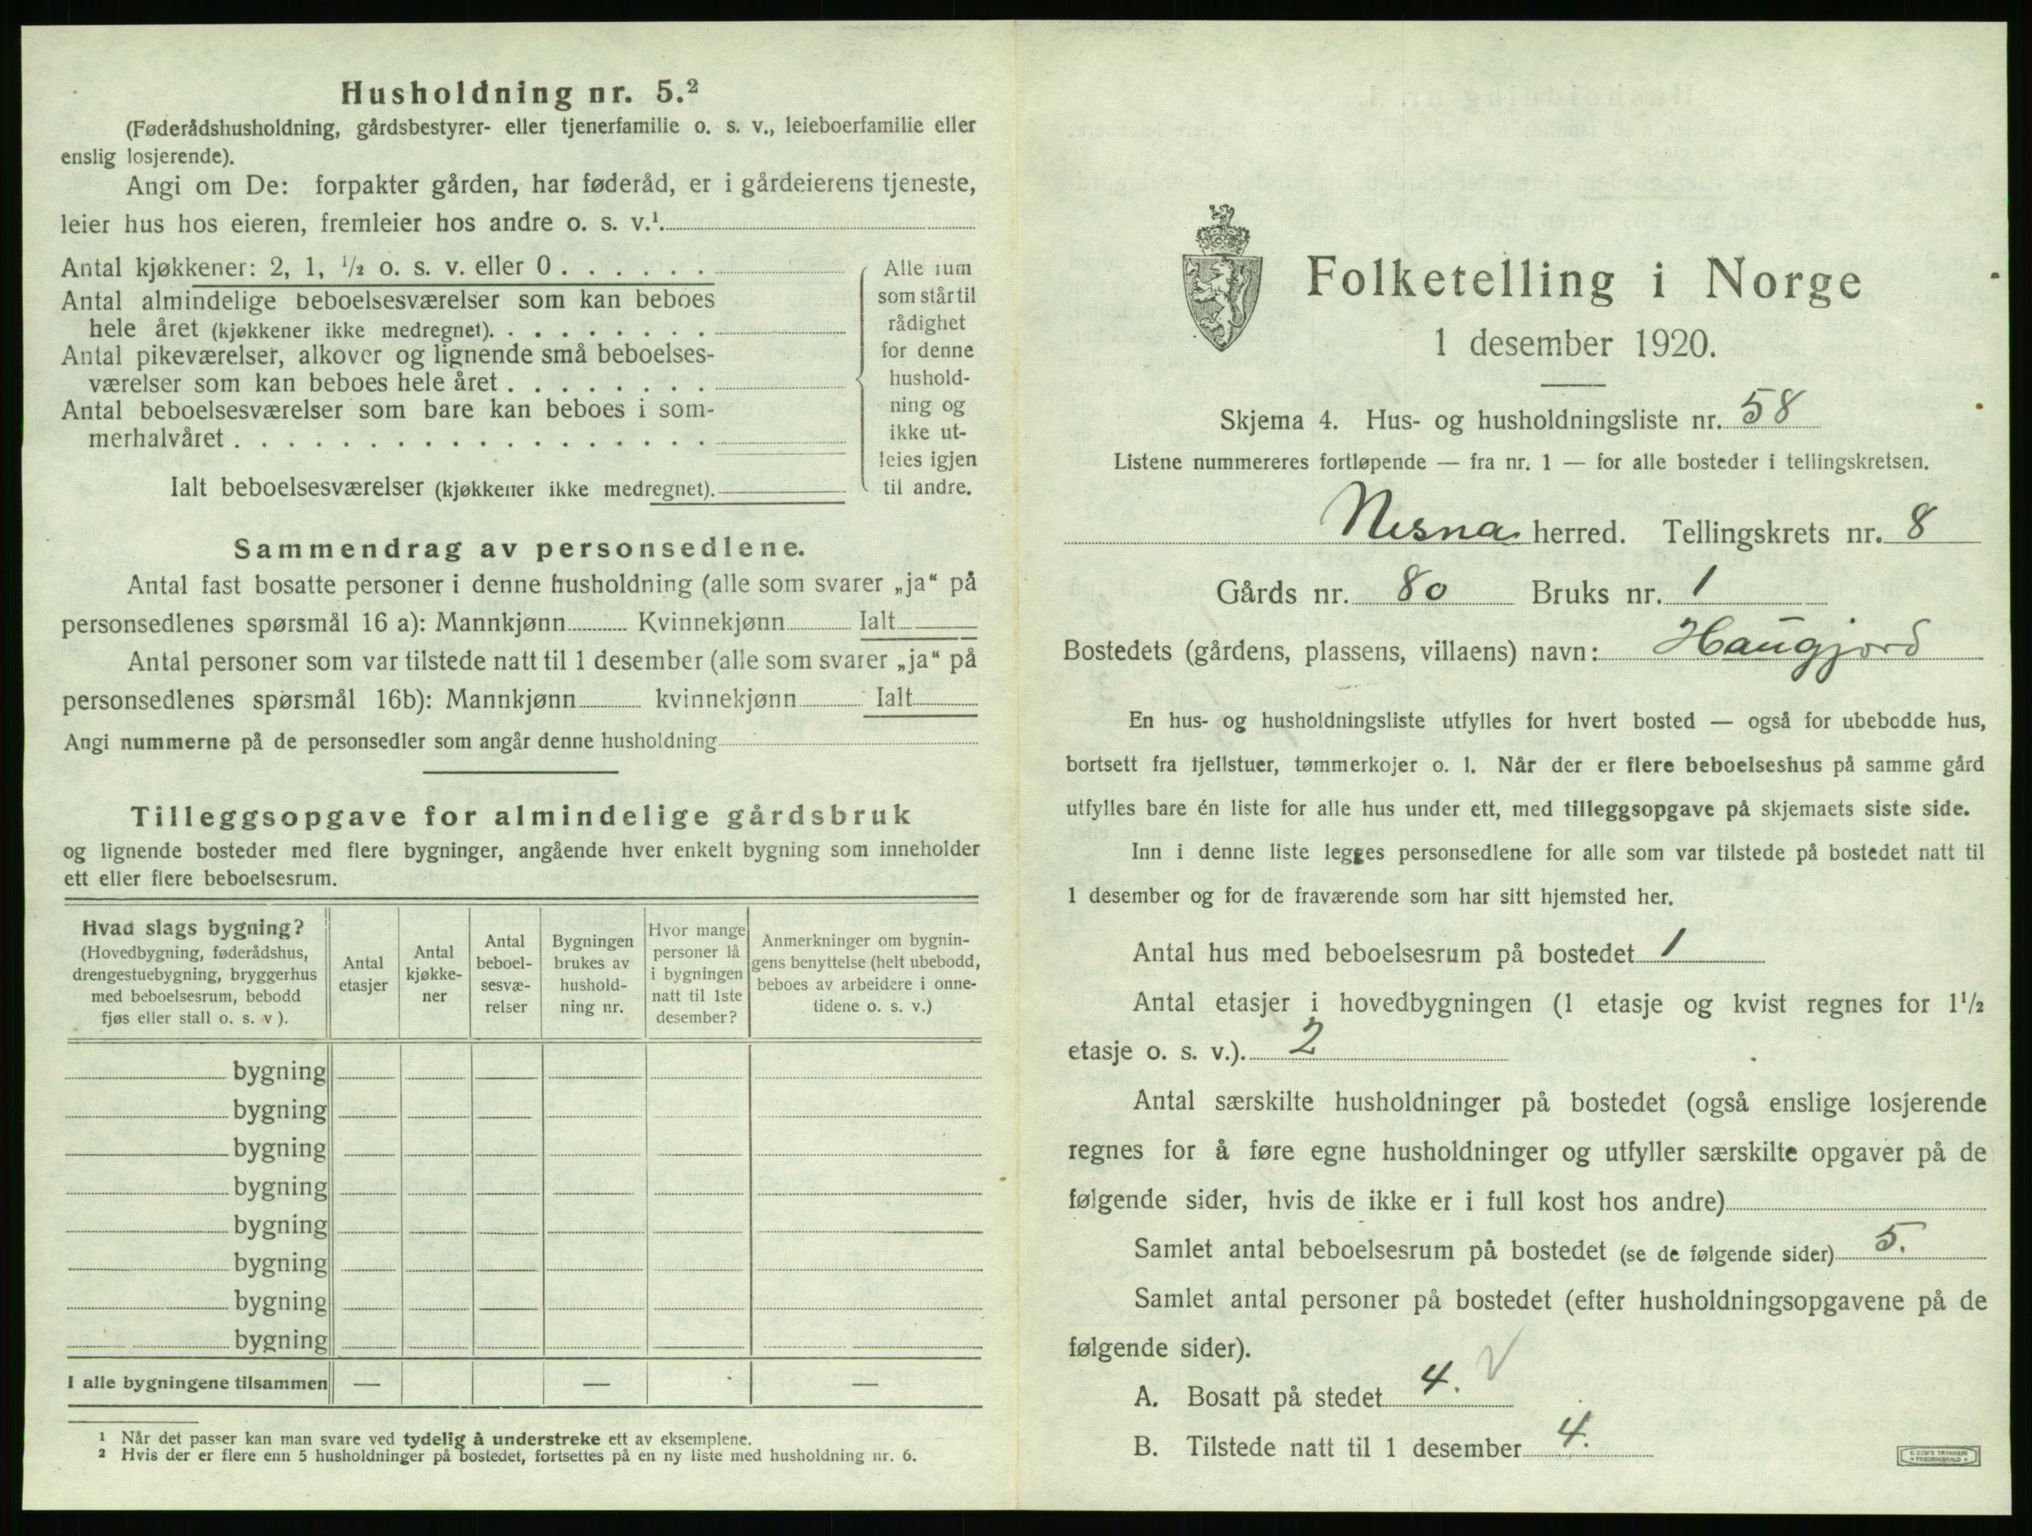 Husholdning nr. 5.²
(Føderådshusholdning, gårdsbestyrer- eller tjenerfamilie o. s. v., leieboerfamilie eller
enslig losjerende).
Angi om De: forpakter gården, har føderåd, er i gårdeierens tjeneste,
leier hus hos eieren, fremleier hos andre o. s. v.¹.
Antal kjøkkener: 2, 1, ½ o. s. v. eller 0 . . . . . .
Antal almindelige beboelsesværelser som kan beboes
hele året (kjøkkener ikke medregnet). . . . . . . . .
Antal pikeværelser, alkover og lignende små beboelses-
værelser som kan beboes hele året . . . . . . . .
Antal beboelsesværelser som bare kan beboes i som-
merhalvåret . . . . . . . . . . . . . . . . . .
Ialt beboelsesværelser (kjøkkener ikke medregnet).
Alle rum
som står til
rådighet
for denne
hushold-
ning og
ikke ut-
leies igjen
til andre.
Sammendrag av personsedlene.
Antal fast bosatte personer i denne husholdning (alle som svarer „ja“ på
personsedlenes spørsmål 16 a): Mannkjønn Kvinnekjønn Ialt
Antal personer som var tilstede natt til 1 desember (alle som svarer „ja“ på
personsedlenes spørsmål 16b): Mannkjønn kvinnekjønn Ialt
Angi nummerne på de personsedler som angår denne husholdning
Tilleggsopgave for almindelige gårdsbruk
og lignende bosteder med flere bygninger, angående hver enkelt bygning som inneholder
ett eller flere beboelsesrum.
Hvad slags bygning?
(Hovedbygning, føderådshus,
drengestuebygning, bryggerhus
med beboelsesrum, bebodd
fjøs eller stall o. s. v ).
Antal
etasjer
Antal
kjøkke-
ner
Antal
beboel-
sesvæ-
relser
Bygningen
brukes av
hushold-
ning nr.
Hvor mange
personer lå
i bygningen
natt til 1ste
desember?
Anmerkninger om bygnin-
gens benyttelse (helt ubebodd,
beboes av arbeidere i onne-
tidene o. s. v.)
bygning
bygning
bygning
bygning
bygning
bygning
bygning
bygning
I alle bygningene tilsammen — — —
¹ Når det passer kan man svare ved tydelig å understreke ett av eksemplene.
² Hvis der er flere enn 5 husholdninger på bostedet, fortsettes på en ny liste med husholdning nr. 6.
Folketelling i Norge
1 desember 1920.
Skjema 4. Hus- og husholdningsliste nr. 58
Listene nummereres fortløpende — fra nr. 1 — for alle bosteder i tellingskretsen.
Nesna herred. Tellingskrets nr. 8
Gårds nr. 80 Bruks nr. 1
Bostedets (gårdens, plassens, villaens) navn: Haugjord
En hus- og husholdningsliste utfylles for hvert bosted — også for ubebodde hus,
bortsett fra fjellstuer, tømmerkojer o. l. Når der er flere beboelseshus på samme gård
utfylles bare én liste for alle hus under ett, med tilleggsopgave på skjemaets siste side.
Inn i denne liste legges personsedlene for alle som var tilstede på bostedet natt til
1 desember og for de fraværende som har sitt hjemsted her.
Antal hus med beboelsesrum på bostedet 1
Antal etasjer i hovedbygningen (1 etasje og kvist regnes for 1½
etasje o. s. v.). 2
Antal særskilte husholdninger på bostedet (også enslige losjerende
regnes for å føre egne husholdninger og utfyller særskilte opgaver på de
følgende sider, hvis de ikke er i full kost hos andre)
Samlet antal beboelsesrum på bostedet (se de følgende sider) 5.
Samlet antal personer på bostedet (efter husholdningsopgavene på de
følgende sider).
A. Bosatt på stedet 4. V
B. Tilstede natt til 1 desember 4.